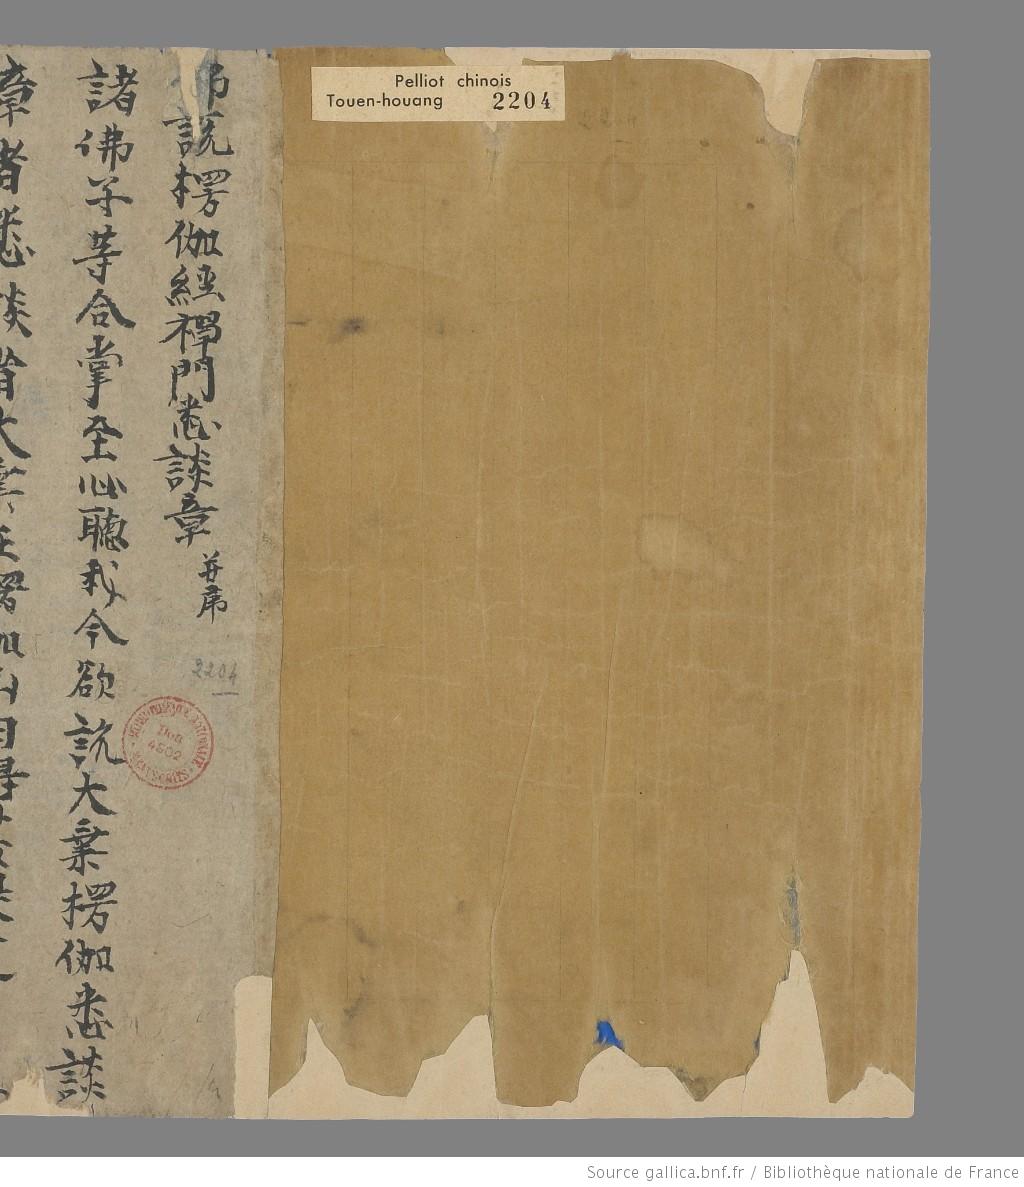 Pelliot chinois
Touen-houang 2204
佛說楞伽經禪門悉談章 并序
2204
諸佛子等合掌至心聽我今欲說大乗楞伽悉談
章者悉談者大乗在楞伽山因得
Source gallica.bnf.fr / Bibliothèque nationale de France